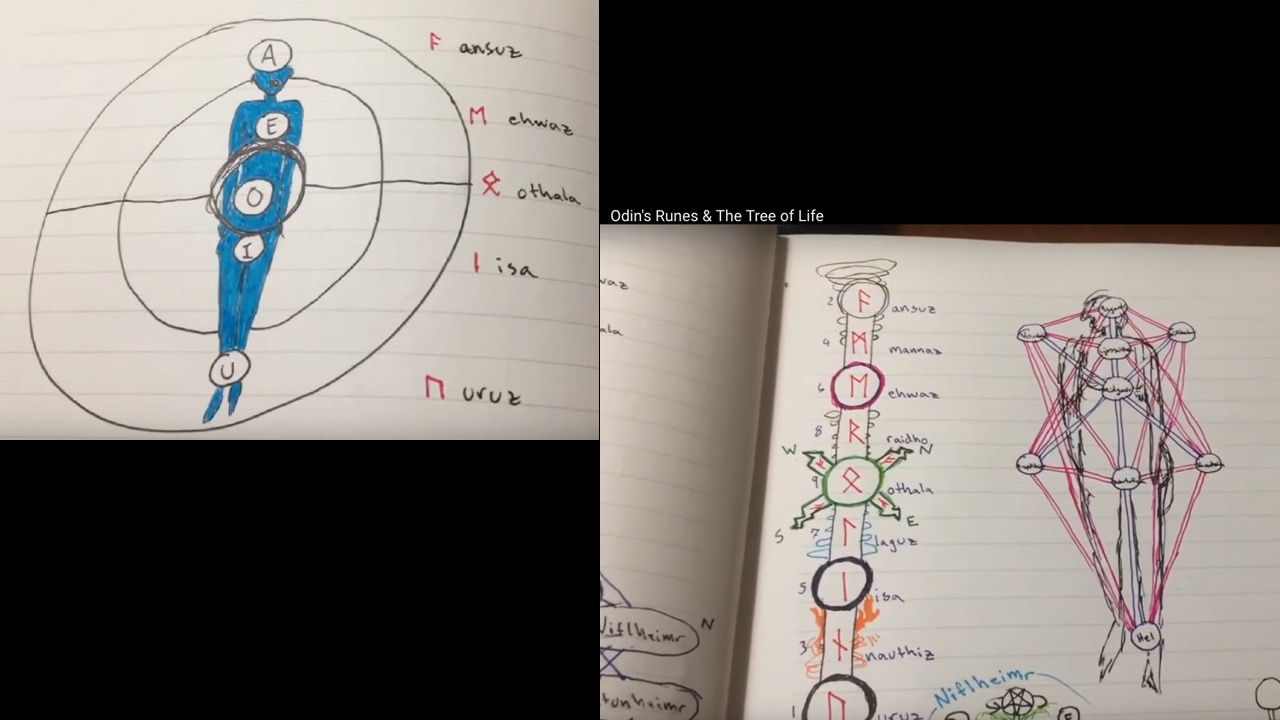 A
E
O
I
U
ᚨ ansuz
ᛖ ehwaz
ᛟ othala
ᛁ isa
ᚢ uruz
Odin's Runes & The Tree of Life
2 ᚨ ansuz
4 ᛗ mannaz
6 ᛖ ehwaz
8 ᚱ raidho
W N
9 ᛟ othala
S E
7 ᛚ laguz
5 ᛁ isa
3 ᚾ nauthiz
1 ᚢ uruz
Hel
Niflheimr N
Niflheimr
E